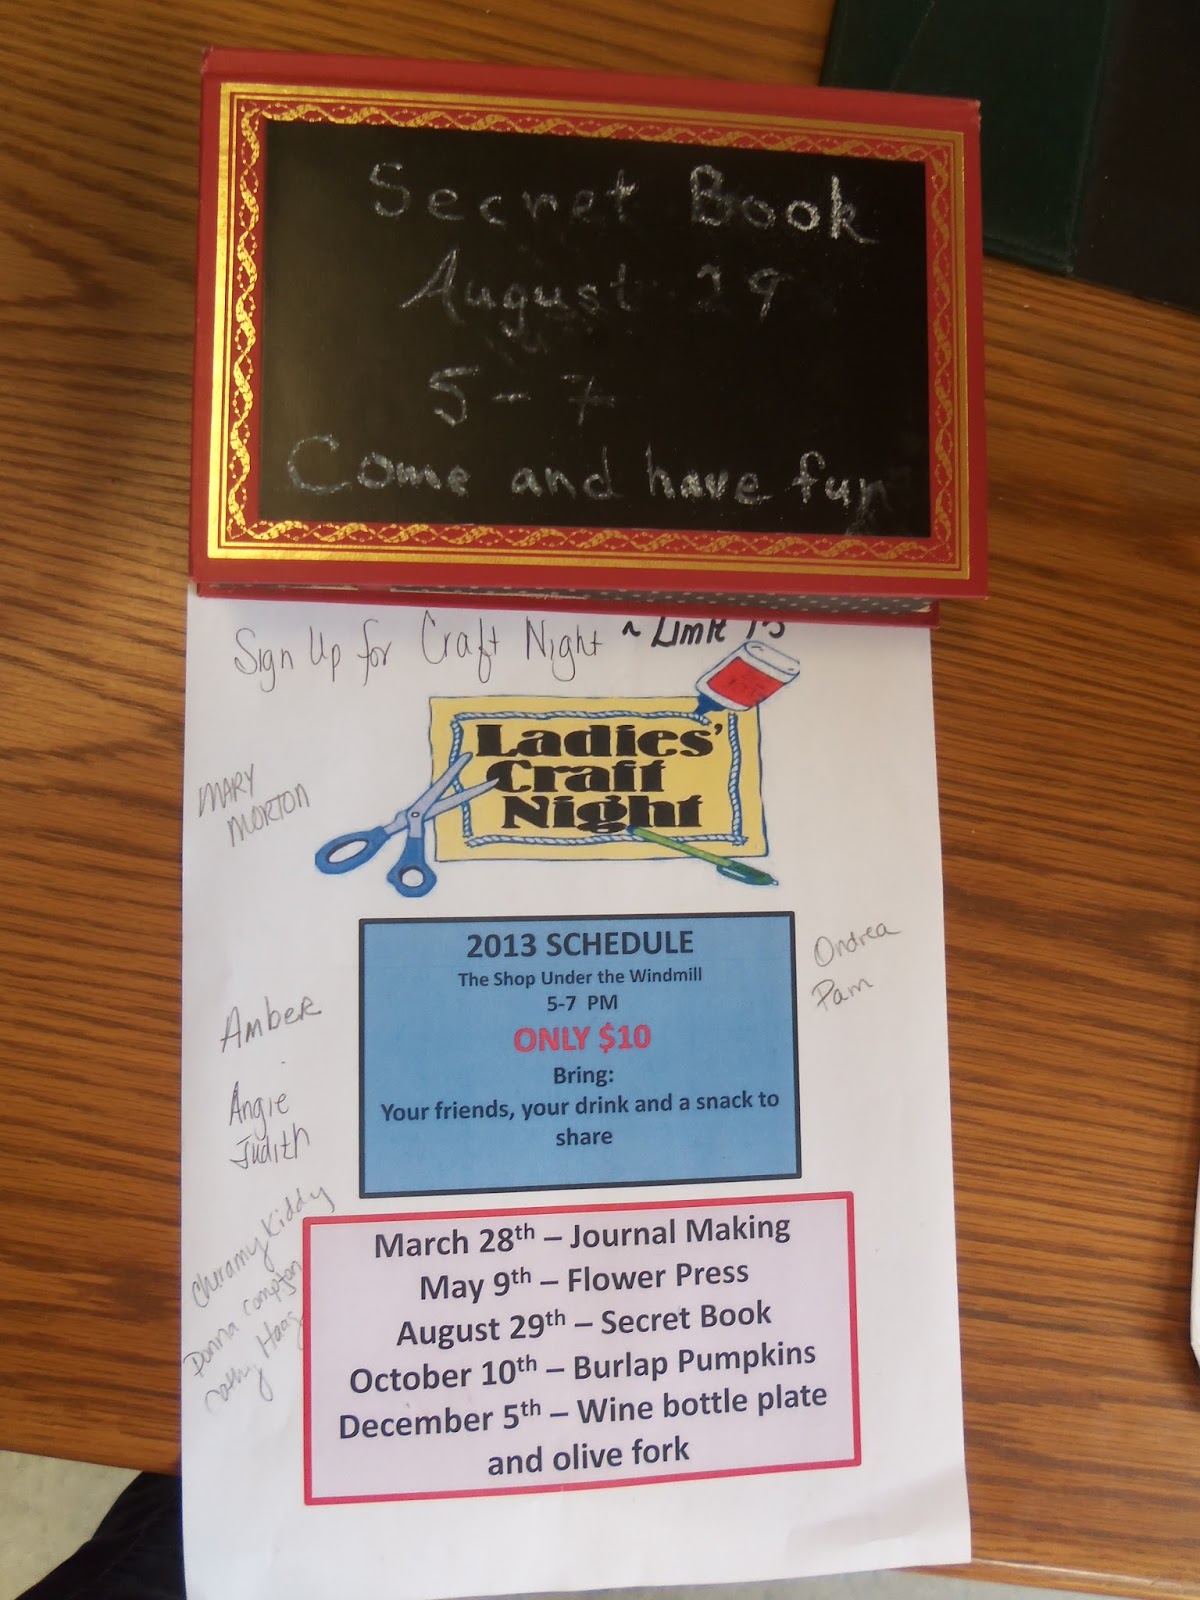 Secret Book
August 29
5-7
Come and have fun
Sign Up for Craft Night ~ Limit 15
Ladies'
Craft
Night
MARY
MORTON
2013 SCHEDULE
The Shop Under the Windmill
5-7 PM
ONLY $10
Bring:
Your friends, your drink and a snack to
share
Ondrea
Pam
Amber
Angie
Judith
Cheramy Kiddy
Donna Compton
Haag
March 28th – Journal Making
May 9th – Flower Press
August 29th – Secret Book
October 10th – Burlap Pumpkins
December 5th – Wine bottle plate
and olive fork